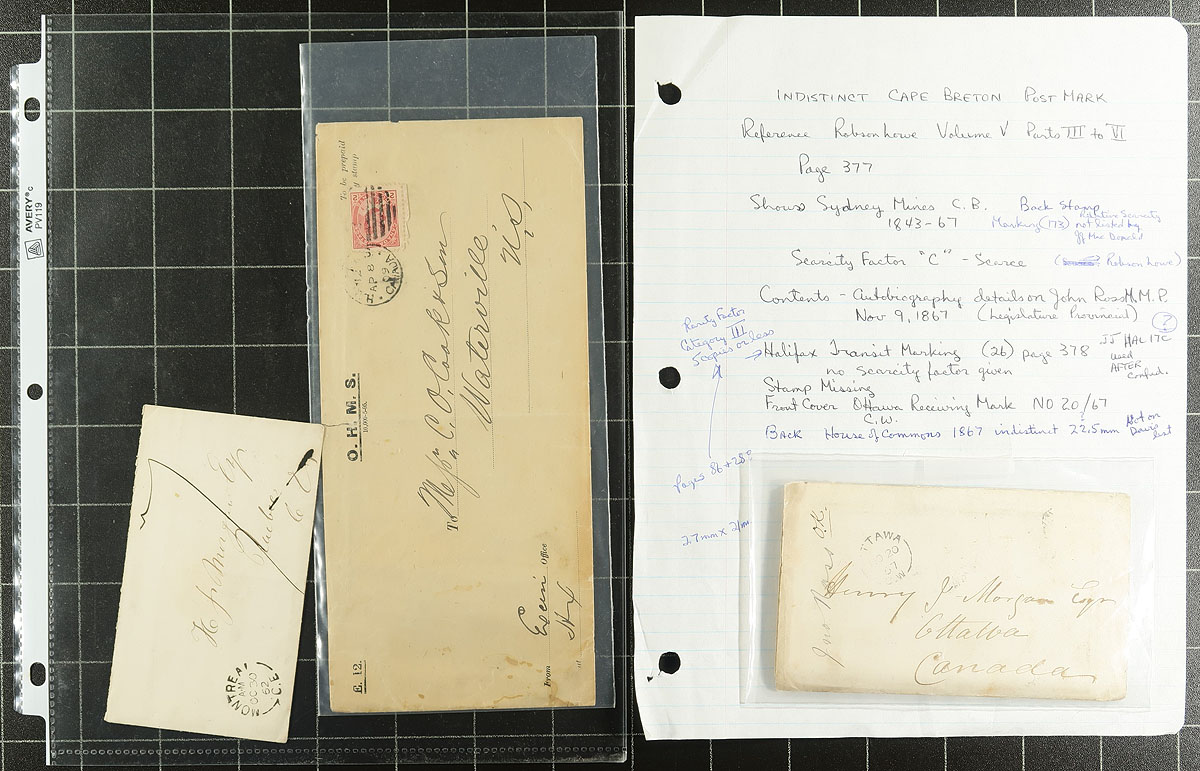 AVERY®
PV119
MONTREAL
AM
OC 20
62
C.E.
Esq
Quebec
C E
7
To be prepaid
by stamp
AP 8
CANADA
O. H. M. S.
To Messrs C. O. Cook & Son
Waterville
N.S.
E. 12.
From Office
INDISTINCT CAPE BRETON POSTMARK
Reference Robson Lowe Volume V Parts III to VI
Page 377
Shows Sydney Mines C.B. Back Stamp
1843-67 Marking (73) not listed by
Scarcity Factor "C" - Scarce (Robson Lowe)
Contents - Autobiography details on John Ross M.P.
Nov 9, 1867 (Legislature Provincial)
Rarity Factor
Category III
5 copies or less
→ Halifax Transit Marking (26) page 378
no scarcity factor given
used
AFTER
Confed.
Stamp Missing
Front Cover Ottawa Receiving Mark NO 20/67
C.W.
Back House of Commons 1867 indistinct 22.5mm Not on
Davis
list
pages 86 + 280
27mm x 21mm
TAWA
Henry J. Morgan Esqr
Ottawa
Canada